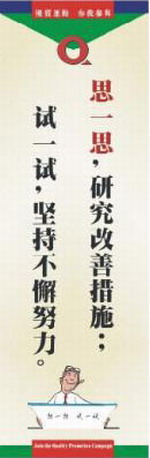 优质运动 你我参与
Q
思一思，研究改善措施；
试一试，坚持不懈努力。
想一想 试一试
Join the Quality Promotion Campaign